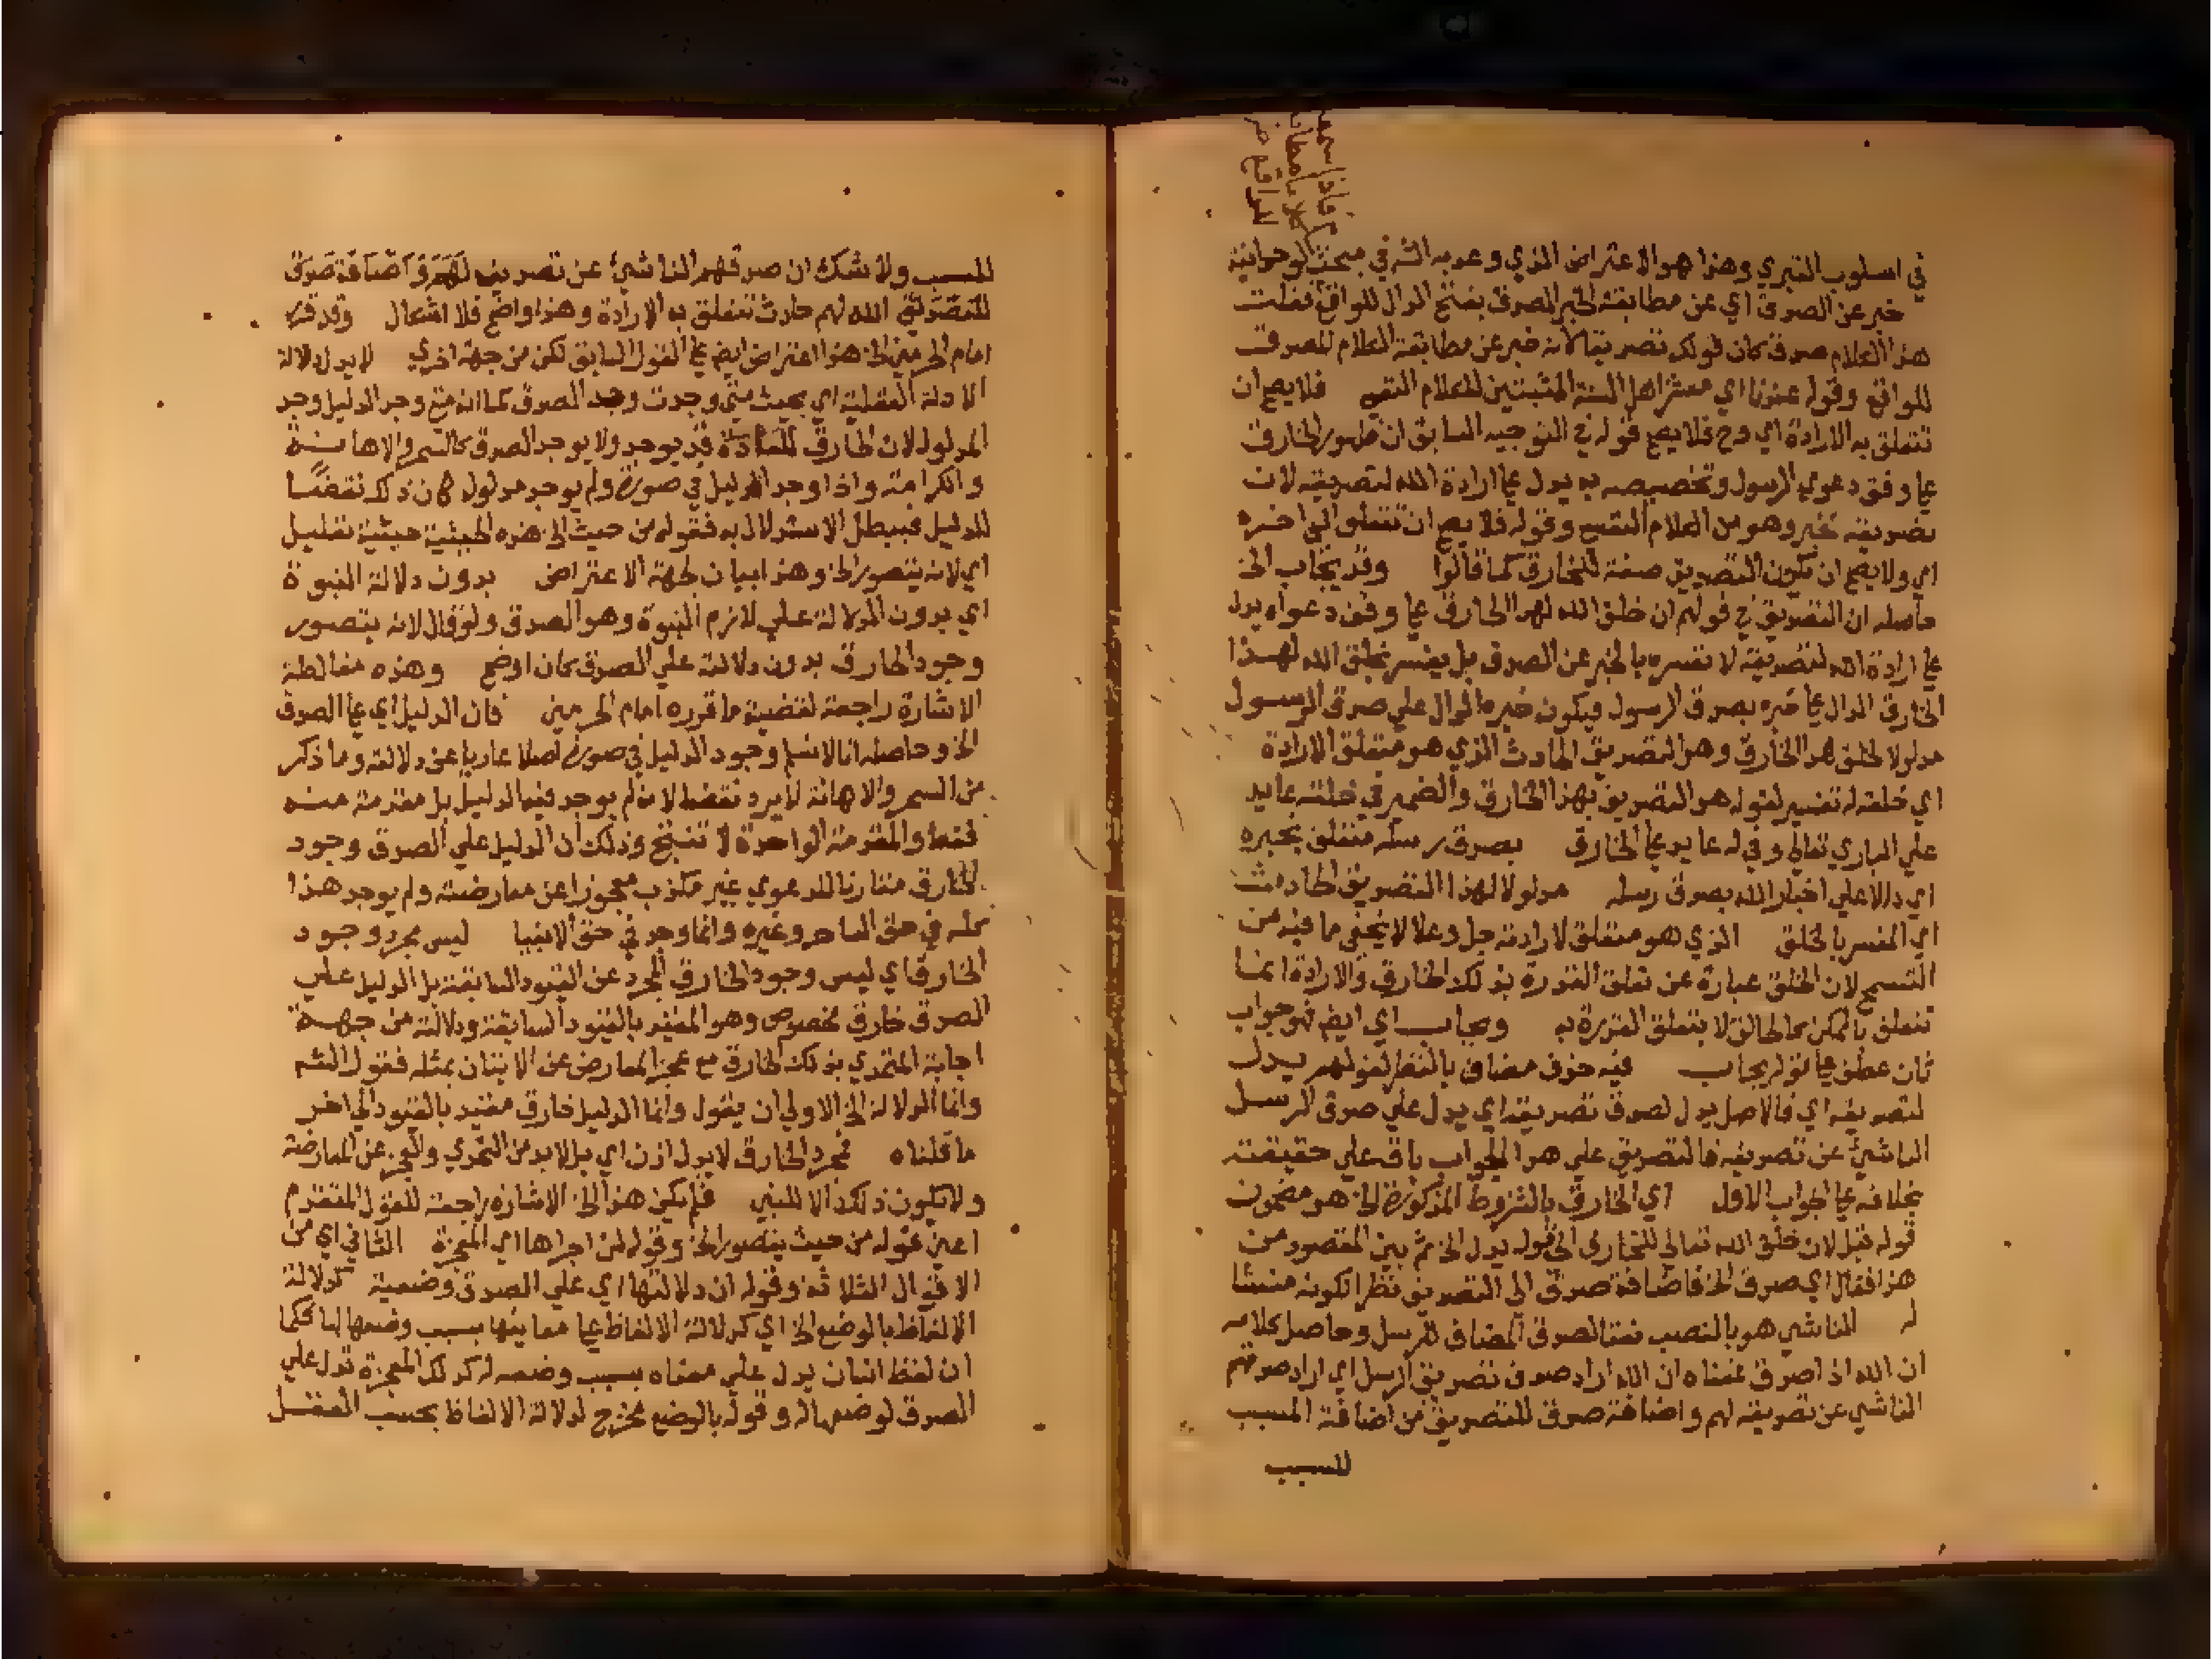 في اسلوب التبري وهذا هو الاعتراض الذي وعد به الشه في مبحث الوحدانية
خبر عن الصدق اي عن مطابقة الخبر المصدق بفتح الدال للواقع فقلت
هذا الكلام صدق كان قولك تصديقا لانه خبر عن مطابقة الكلام المصدق
للواقع وقوله عندنا اي معشر اهل السنة المثبتين للكلام النفسي فلا يصح ان
تتعلق به الارادة اي وح فلا يصح قوله في التوجيه السابق ان ظهور الخارق
علي وفق دعوي الرسول وتخصيصه به يدل علي ارادة الله لتصديقه لان
تصديقه خبر وهو من الكلام النفسي وقوله فلا يصح ان تتعلق الي اخره
اي ولا يصح ان تكون التصديق صفة للخارق كما قالوا وقد يجاب الخ
حاصله ان التصديق في قولهم ان خلق الله لهذا الخارق علي وفق دعواه يدل
علي ارادة الله لتصديقه لا نفسره بالخبر عن الصدق بل يفسر بخلق الله لهذا
الخارق الدال علي خبره بصدق الرسول فيكون خبره الدال علي صدق الرسول
مدلولا لخلق هذا الخارق وهو التصديق الحادث الذي هو متعلق الارادة
اي خلقه له تفسير لقوله هو التصديق بهذا الخارق والضمير في خلقه عايد
علي الباري تعالي وفي له عايد علي الخارق بصدق رسله متعلق بخبره
اي دالا علي اخبار الله بصدق رسله مدلولا لهذا التصديق الحادث
اي المفسر بالخلق الذي هو متعلق لارادته جل وعلا لا يخفي ما فيه من
التسمح لان الخلق عبارة عن تعلق القدرة بذلك الخارق والارادة انما
تتعلق بالممكن مما الخالق لا بتعلق القدرة به ويجاب اي ايضا فهو جواب
ثان عطف علي قوله يجاب فيه حذف مضاف بالنظر لقولهم يدل
لتصديقه اي فالاصل يدل لصدق تصديقه اي يدل علي صدق الرسل
الناشئ عن تصديقه فالتصديق علي هذا الجواب باق علي حقيقته
بخلافه علي الجواب الاول اي الخارق بالشروط المذكورة الخ هو مضمون
قوله قبل لان خلق الله تعالي للخارق الي قوله يدل الخ ثم بين المقصود من
هذا فقال اي صدق الخ فاضافة صدق الي التصديق نظرا لكونه منشا
له الناشي هو بالنصب نعتا لصدق المضاف للرسل وحاصل كلامه
ان الله اذا صدق عمناه ان الله اراد صدق تصديق الرسل اي اراد صدقهم
الناشي عن تصديقه لهم واضافة صدق للتصديق من اضافة المسبب
للسبب
للسبب ولا شك ان صدقهم الناشئ عن تصديقه لهم واضافة صدق
للتصديق الله لهم حادث تتعلق به الارادة وهذا واضح فلا اشكال وقد قرر
امام الحرمين الخ هذا اعتراض ايضا علي القول السابق لكن من جهة اخري لا يدل دلالة
الادلة العقلية اي بحيث متي وجدت وجد الصدق كما انه متي وجد الدليل وجد
المدلول لان الخارق للعادة قد يوجد ولا يوجد الصدق كالسحر والاهانة
والكرامة واذا وجد الدليل في صورة ولم يوجد مدلول كان ذلك نقضا
للدليل فيبطل الاستدلال به فقوله من حيث الخ هذه الحيثية حيثية تعليل
اي لانه يتصور الخ وهذا بيان لجهة الاعتراض بدون دلالة النبوة
اي بدون الدلالة علي لازم النبوة وهو الصدق ولو قال لانه يتصور
وجود الخارق بدون دلالته علي الصدق كان اوضح وهذه مغالطة
الاشارة راجعة لقضية ما قرره امام الحرمين فان الدليل اي علي الصدق
الخ وحاصله انا لا نسلم وجود الدليل في صورة اصلا عاريا عن دلالته وما ذكر
من السحر والاهانة لا يرد نقضا لانه لم يوجد فيه الدليل بل مقدمة منه
فقط والمقدمة الواحدة لا تنتج وذلك ان الدليل علي الصدق وجود
الخارق مقارنا للدعوي غير مكذب معجوزا عن معارضته ولم يوجد هذا
كله في حق الساحر وغيره وانما وجد في حق الانبيا ليس مجرد وجود
الخارق اي ليس وجود الخارق المجرد عن القيود السابقة بل الدليل علي
الصدق خارق مخصوص وهو المقيد بالقيود السابقة ودلالته من جهة
اجابة المتحدي بذلك الخارق مع عجز المعارض عن الاتيان بمثله فقول الشه
وانما الدلالة الخ الاولي ان يقول وانما الدليل خارق مقيد بالقيود الي اخر
ما قلناه فمجرد الخارق لا يدل اذن اي بل لابد من التحدي والعجز عن المعارضة
ولا تكون ذلك الا للنبي فلم يكن هذا الخ الاشارة راجعة للقول المتقدم
اعني قوله من حيث يتصور الخ وقوله لمن اجراها اي المعجزة الثاني اي من
الاقوال الثلاثة وقوله ان دلالتها اي علي الصدق وضعية كدلالة
الالفاظ بالوضع الخ اي كدلالة الالفاظ علي معانيها بسبب وضعها لها فكما
ان لفظ انسان يدل علي معناه بسبب وضعه له كذلك المعجزة تدل علي
الصدق لوضعها له وقوله بالوضع مخرج لدلالة الالفاظ بحسب العقل